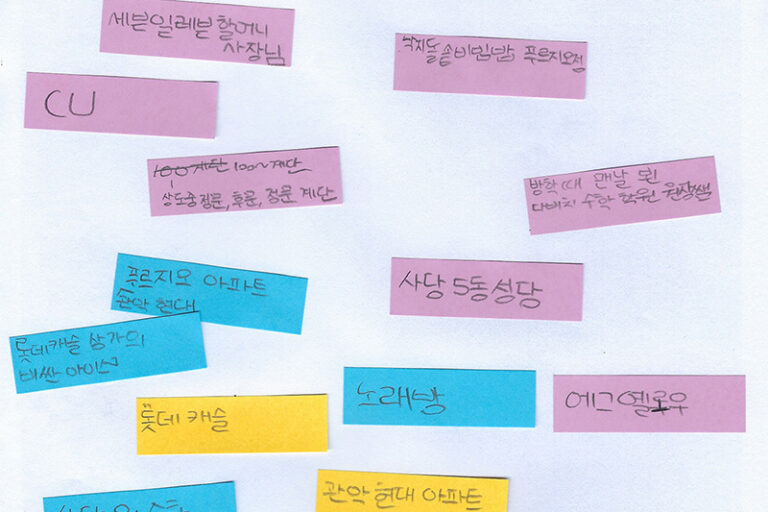 세븐일레븐 할머니
사장님
낙지돌솥비빔밥 푸르지오점
CU
100계단 100~계단
상도중정문, 후문, 정문 계단
방학때 맨날 본
다비치 수학 학원 원장쌤
푸르지오 아파트
관악 현대
사당 5동성당
롯데캐슬 상가의
비싼 아이스
롯데 캐슬
노래방
에그옐로우
관악 현대 아파트